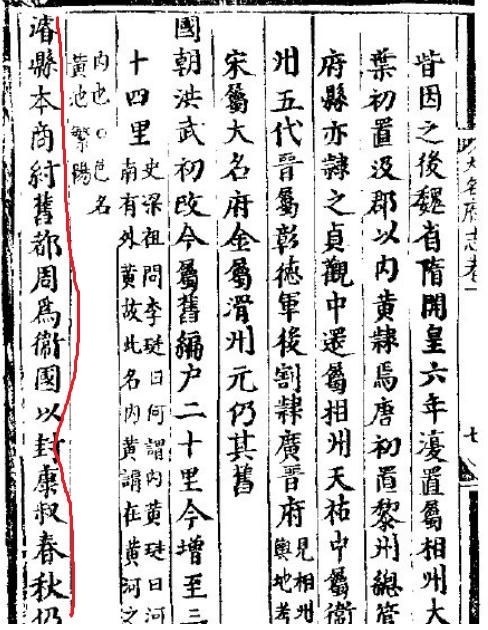 大名府志卷一
七
皆因之後魏省隋開皇六年復置屬相州大
葉初置汲郡以内黄隸焉唐初置黎州總管
府縣亦隸之貞觀中還屬相州天祐中屬衛
州五代晉屬彰德軍後割隸廣晉府見相州
輿地考
宋屬大名府金屬滑州元仍其舊
國朝洪武初改今屬舊編户二十里今增至三
十四里史梁祖問李珽曰何謂内黄珽曰河
南有外黄故此名内黄謂在黄河之
内也○邑名
黄池繁陽
濬縣本商紂舊都周爲衛國以封康叔春秋仍